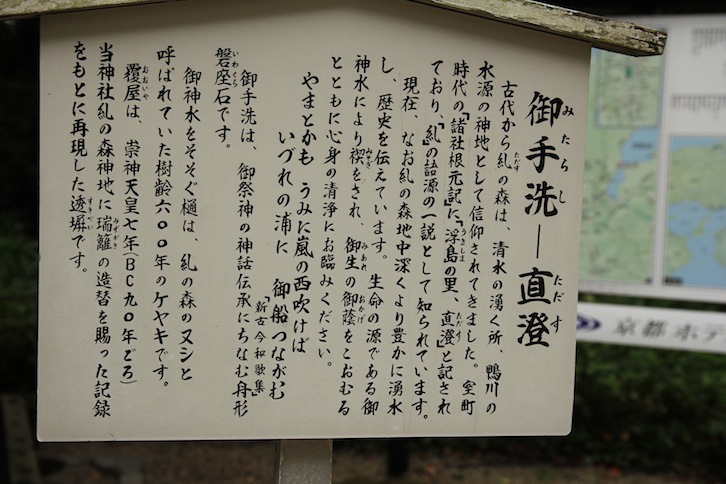 御手洗―直澄
古代から糺の森は、清水の湧く所、鴨川の
水源の神地として信仰されてきました。室町
時代の「諸社根元記」に、「浮島の里、直澄」と記され
ており、「糺」の語源の一説として知られています。
現在、なお糺の森地中深くより豊かに湧水
し、歴史を伝えています。生命の源である御
神水により禊をされ、御生の御蔭をこおむる
とともに心身の清浄にお臨みください。
やまとかも うみに嵐の西吹けば
いづれの浦に 御船つながむ
「新古今和歌集」
御手洗は、御祭神の神話伝承にちなむ舟形
磐座石です。
御神水をそそぐ樋は、糺の森のヌシと
呼ばれていた樹齢六〇〇年のケヤキです。
覆屋は、崇神天皇七年(BC九〇年ごろ)
当神社糺の森神地に瑞籬の造替を賜った記録
をもとに再現した透塀です。
京都ホテ